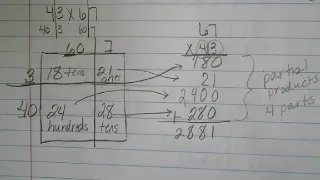 4|3 X 6|7
40|3 60|7
60 7
3 18 tens 21 ones
40 24 hundreds 28 tens
67
X|4|3|
180
21
2400
+ 280
2881
partial
products
4 parts